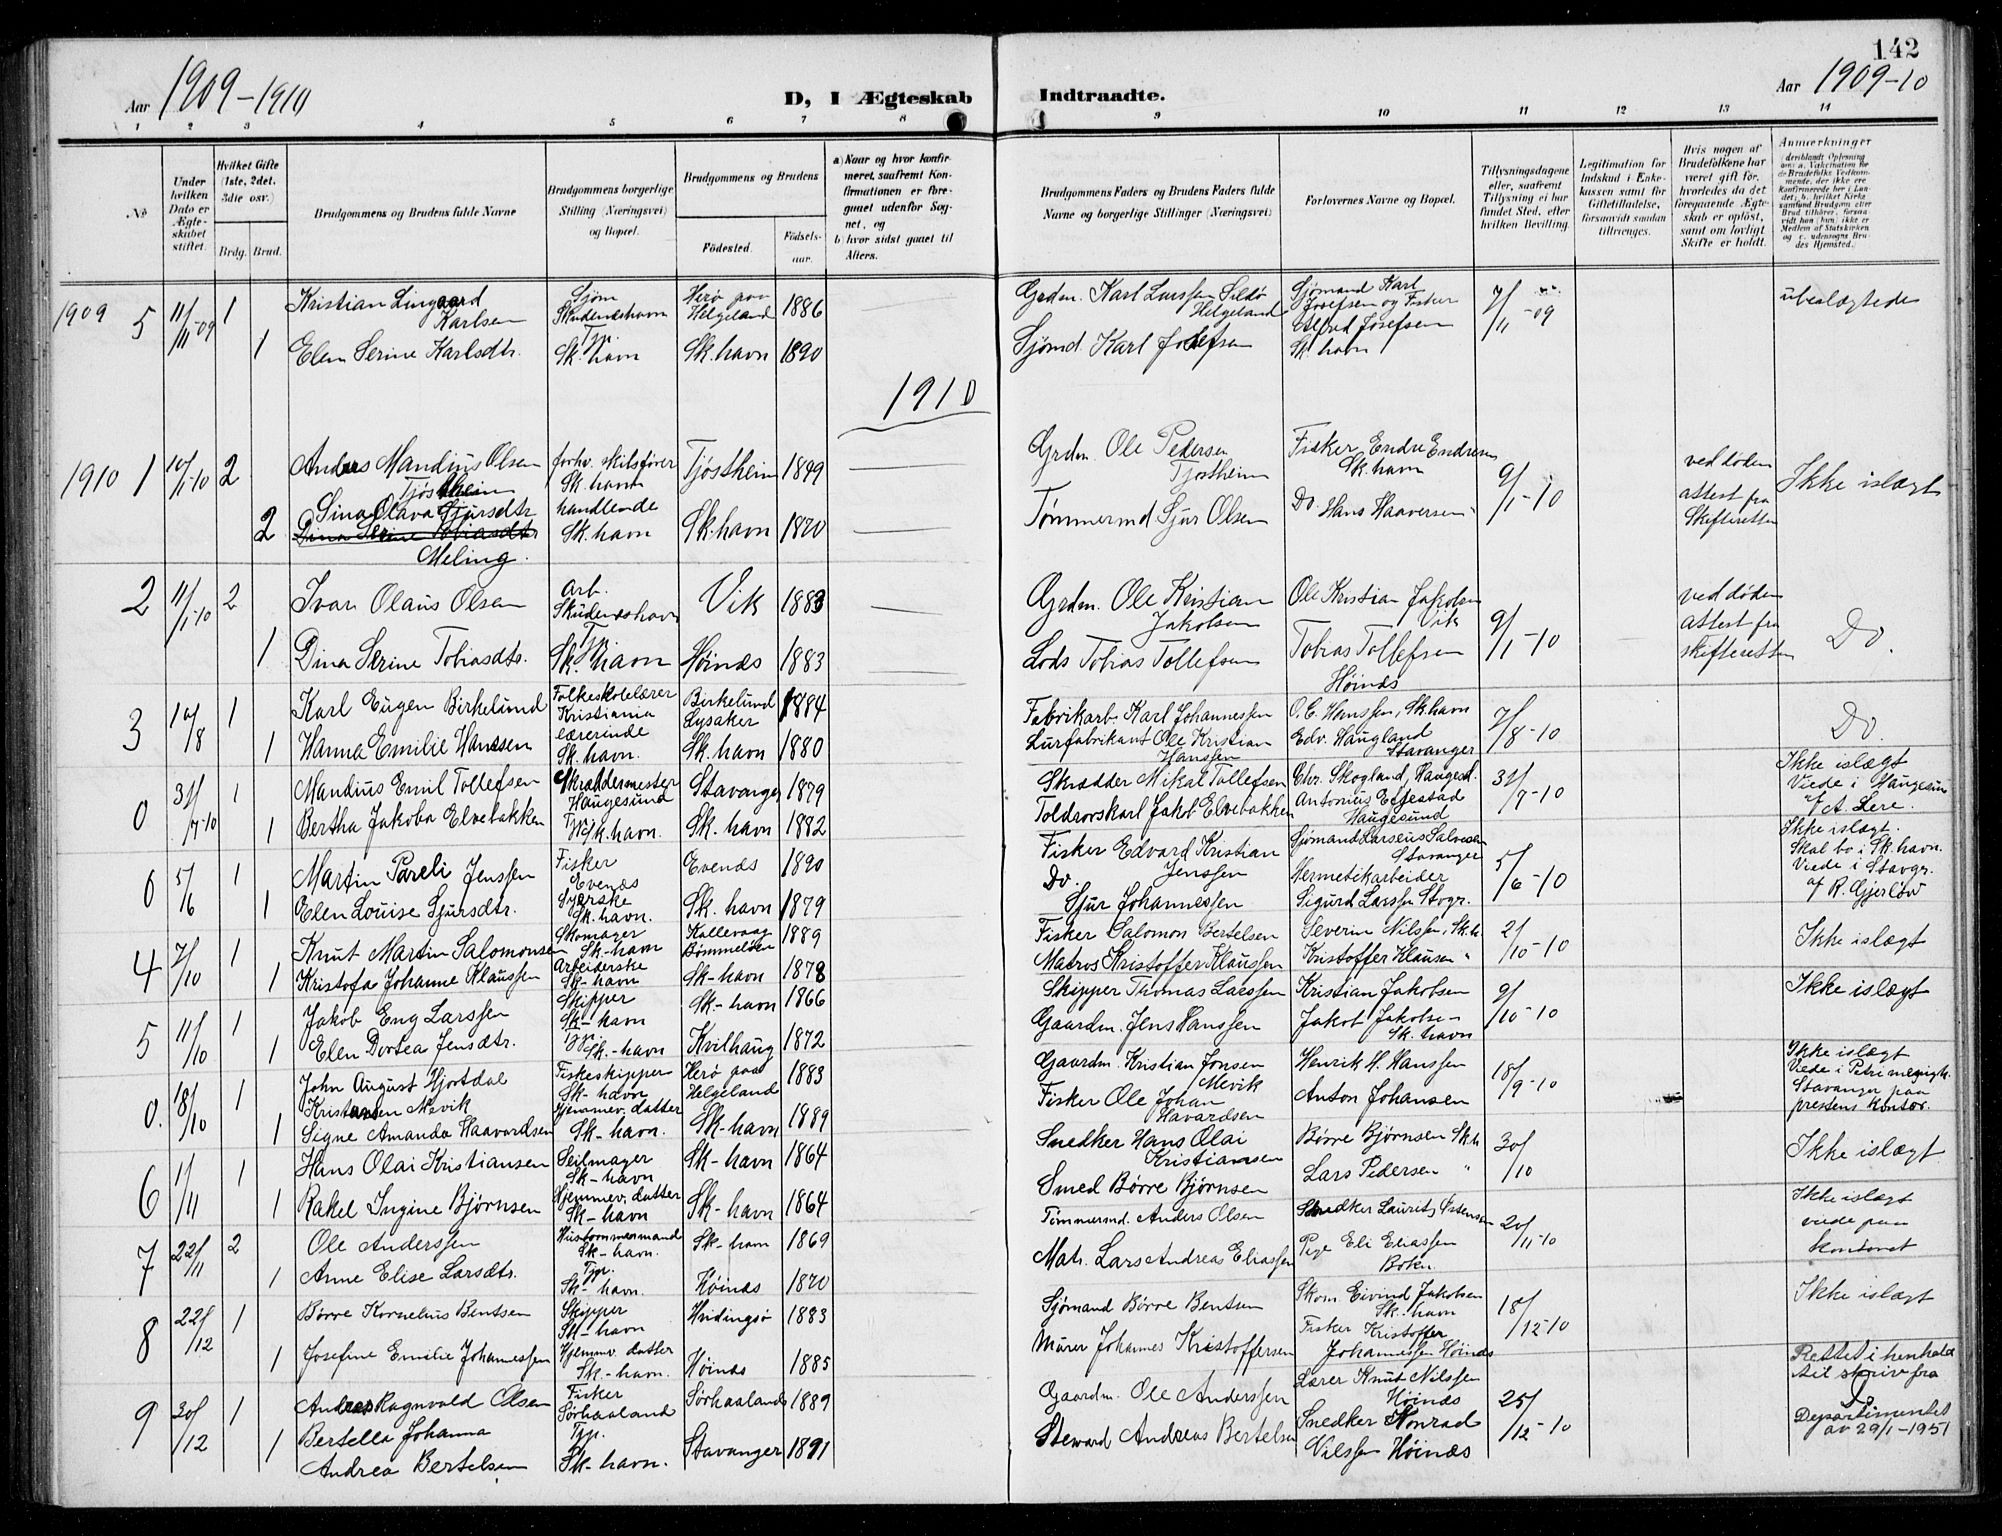 142
Aar 1909-1910
D, I Ægteskab
Indtraadte.
Aar 1909-10
1 2 3 4 5 6 7 8 9 10 11 12 13 14
No
Under hvilken Dato er Ægteskabet stiftet.
Hvilket Gifte (1ste, 2det, 3die osv.)
Brdg. Brud.
Brudgommens og Brudens fulde Navne
Brudgommens borgerlige Stilling (Næringsvei) og Bopæl.
Brudgommens og Brudens
Fødested.
Fødselsaar.
a) Naar og hvor konfirmeret, saafremt Konfirmationen er foregaaet udenfor Sognet, og
b) hvor sidst gaaet til Alters.
Brudgommens Faders og Brudens Faders fulde Navne og borgerlige Stillinger (Næringsvei)
Forlovernes Navne og Bopæl.
Tillysningsdagene eller, saafremt Tillysning ei har fundet Sted, efter hvilken Bevilling.
Legitimation for Indskud i Enkekassen samt for Giftetilladelse, forsaavidt saadan tiltrænges.
Hvis nogen af Brudefolkene har været gift før, hvorledes da det foregaaende Ægteskab er opløst, samt om lovligt Skifte er holdt.
Anmærkninger
1909 5 11/11-09 1 Kristian Lingaard Karlsen Sjøm Skudeneshavn Herø paa Helgeland 1886 Grdm. Karl Larssen Sildø Helgeland Sjømand Karl Josefsen og Fisker 7/11-09 ubeslægtede
1 Elen Serine Karlsdtr. Tjp. Sk. havn Sk. havn 1890 Sjømd. Karl Josefsen Alfred Josefsen Sk. havn
1910
1910 1 10/1-10 2 Anders Mandius Olsen Tjøstheim forhv. skibsfører Sk. havn Tjøstheim 1849 Grdm. Ole Pedersen Tjøstheim Fisker Endre Endresen Sk. havn 9/1-10 ved døden attest fra Skifteretten Ikke islægt
2 Sina Olava Sjursdtr Dina Serine Tobiasdtr Meling. handlende Sk. havn Sk. havn 1870 Tømmermd Sjur Olsen Do. Hans Haaversen
2 11/1-10 2 Ivar Olaus Olsen Arb. Skudeneshavn Vik 1883 Grdm. Ole Kristian Jakobsen Ole Kristian Jakobsen Vik 9/1-10 ved døden attest fra skifteretten Do.
1 Dina Serine Tobiasdtr. Tjp. Sk. havn Høines 1883 Lods Tobias Tollefsen Tobias Tollefsen Høines
3 10/8 1 Karl Eugen Birkelund Folkeskolelærer Kristiania Birkelund Lysaker 1884 Fabrikarb. Karl Johannessen O. C. Hanssen, Sk. havn 7/8-10 Do.
1 Hanna Emilie Hanssen lærerinde Sk. havn. Sk. havn 1880 Lurfabrikant Ole Kristian Hanssen Edv. Haugland Stavanger
0 31/7-10 1 Mandius Emil Tollefsen Skræddermester Haugesund Stavanger 1879 Skrædder Mikal Tollefsen Chr. Skogland, Haugesd. 31/7-10 Ikke islægt Viede i Haugesund af A. Lere.
1 Bertha Jakoba Elvebakken Tjp. Sk. havn. Sk. havn 1882 Toldrorskarl Jakob Elvebakken Antonius Effestad Haugesund
0 5/6 1 Martin Pareli Jenssen Fisker Evenes Evenes 1890 Fisker Edvard Kristian Jenssen Sjømand Larseus Salvesen Stavanger 5/6-10 Ikke islægt. Skal bo i Sk. havn. Viede i Stavgr. af R. Gjerløw
1 Elen Louise Sjursdtr. Syerske Sk. havn. Sk. havn 1879 Do. Sjur Johannessen Hermetikarbeider Sigurd Larssen Stvgr.
4 7/10 1 Knut Martin Salomonsen Skomager Sk-havn Kallevaag Bømmeløen 1889 Fisker Salomon Bertelsen Severin Nilssen, Sk. h. 2/10-10 Ikke islægt
1 Kristofa Johanne Klaussen Arbeiderske Sk-havn Sk-havn 1878 Matros Kristoffer Klaussen Kristoffer Klausen "
5 11/10 1 Jakob Eng Larssen Skipper Sk-havn Sk-havn 1866 Skipper Thomas Larssen Kristian Jakobsen 9/10-10 Ikke islægt
1 Elen Dortea Jensdtr. Tjp. Sk.-havn Kvilhaug 1872 Gaardm. Jens Hanssen Jakob Jakobse- Sk. havn
0. 18/10 1 John August Hjortdal Kristensen Mevik Fiskeskipper Sk-havn Herø paa Helgeland 1883 Gaardm. Kristian Jonsen Mevik Henrik H. Hanssen 18/9-10 Ikke islægt Viede i Petri menigh. Stavanger paa prestens kontor.
1 Signe Amanda Haavardsen Hjemmev. datter Sk-havn. Sk-havn 1889 Fisker Ole Johan Havardsen Anton Johansen
6 1/11 1 Hans Olai Kristiansen Seilmager Sk-havn Sk-havn 1864 Snedker Hans Olai Kristiansen Børre Bjørnsen Sk. h. 30/10 Ikke islægt
1 Rakel Ingine Bjørnsen Hjemmev. datter Sk-havn Sk-havn 1864 Smed Børre Bjørnsen Lars Pedersen "
7 22/11 2 Ole Anderssen Hustømmermand Sk-havn. Sk-havn 1869 Tømmermd. Anders Olsen Snedker Laurits Østensen 20/11-10 Ikke islægt viede paa kontoret
1 Anne Elise Larsdtr. Tjp. Sk-havn. Høines 1870 Matr. Lars Andreas Eliassen Pige Eli Eliassen Bokn.
8 22/12 1 Børre Kornelius Bentsen Skipper Sk-havn Hvidingsø 1883 Sjømand Børre Bentsen Skom. Eivind Jakobsen Sk. havn 18/12-10 Ikke islægt
1 Josefine Emilie Johannessen Hjemmv. datter Sk.-havn. Høines 1885 Murer Johannes Kristoffersen Fisker Kristoffer Johannessen Høines
9 30/12 1 Andreas Ragnvald Olsen Fisker Sørhaaland Sørhaaland 1889 Gaardm. Ole Anderssen Lærer Knut Nilssen Høines 25/12-10 Rettet i henhold til skriv fra Departementet av 29/1-1951
1 Bertella Johanna Andrea Bertelsen Tjp. Sk-havn. Stavanger 1891 Steward Andreas Bertelsen Snedker Konrad Nilssen Høines